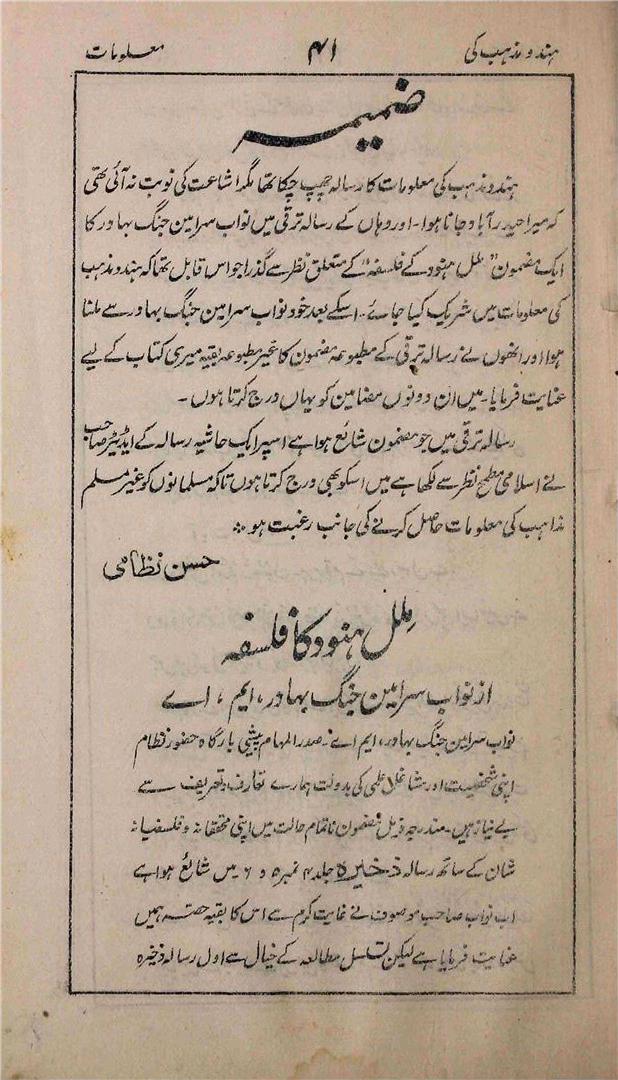 ہندو مذہب کی ۴۱ معلومات
ضمیمہ
ہندو مذہب کی معلومات کا رسالہ چھپ چکا تھا مگر اشاعت کی نوبت نہ آئی تھی
کہ میرا حیدرآباد جانا ہوا۔ اور وہاں کے رسالہ ترقی میں نواب سر امین جنگ بہادر کا
ایک مضمون "ملل ہنود کے فلسفہ" کے متعلق نظر سے گذرا جو اس قابل تھا کہ ہندو مذہب
کی معلومات میں شریک کیا جائے۔ اسکے بعد خود نواب سر امین جنگ بہادر سے ملنا
ہوا اور انھوں نے رسالہ ترقی کے مطبوعہ مضمون کا غیر مطبوعہ بقیہ میری کتاب کے لیے
عنایت فرمایا۔ میں ان دونوں مضامین کو یہاں درج کرتا ہوں۔
رسالہ ترقی میں جو مضمون شائع ہوا ہے اسپر ایک حاشیہ رسالہ کے ایڈیٹر صاحب
نے اسلامی مطمح نظر سے لکھا ہے میں اسکو بھی درج کرتا ہوں تاکہ مسلمانوں کو غیر مسلم
مذاہب کی معلومات حاصل کرنے کی جانب رغبت ہو
حسن نظامی
ملل ہنود کا فلسفہ
از نواب سر امین جنگ بہادر، ایم، اے
نواب سر امین جنگ بہادر، ایم اے۔ صدر المہام پیشی بارگاہ حضور نظام
اپنی شخصیت اور مشاغل علمی کی بدولت ہمارے تعارف و تعریف سے
بے نیاز ہیں۔ مندرجہ ذیل مضمون ناتمام حالت میں اپنی محققانہ و فلسفیانہ
شان کے ساتھ رسالہ ذخیرہ جلد ۴ نمبر ۵ و ۶ میں شائع ہوا ہے
اب نواب صاحب موصوف نے غایت کرم سے اس کا بقیہ حصہ ہمیں
عنایت فرمایا ہے لیکن تسلسل مطالعہ کے خیال سے اول رسالہ ذخیرہ